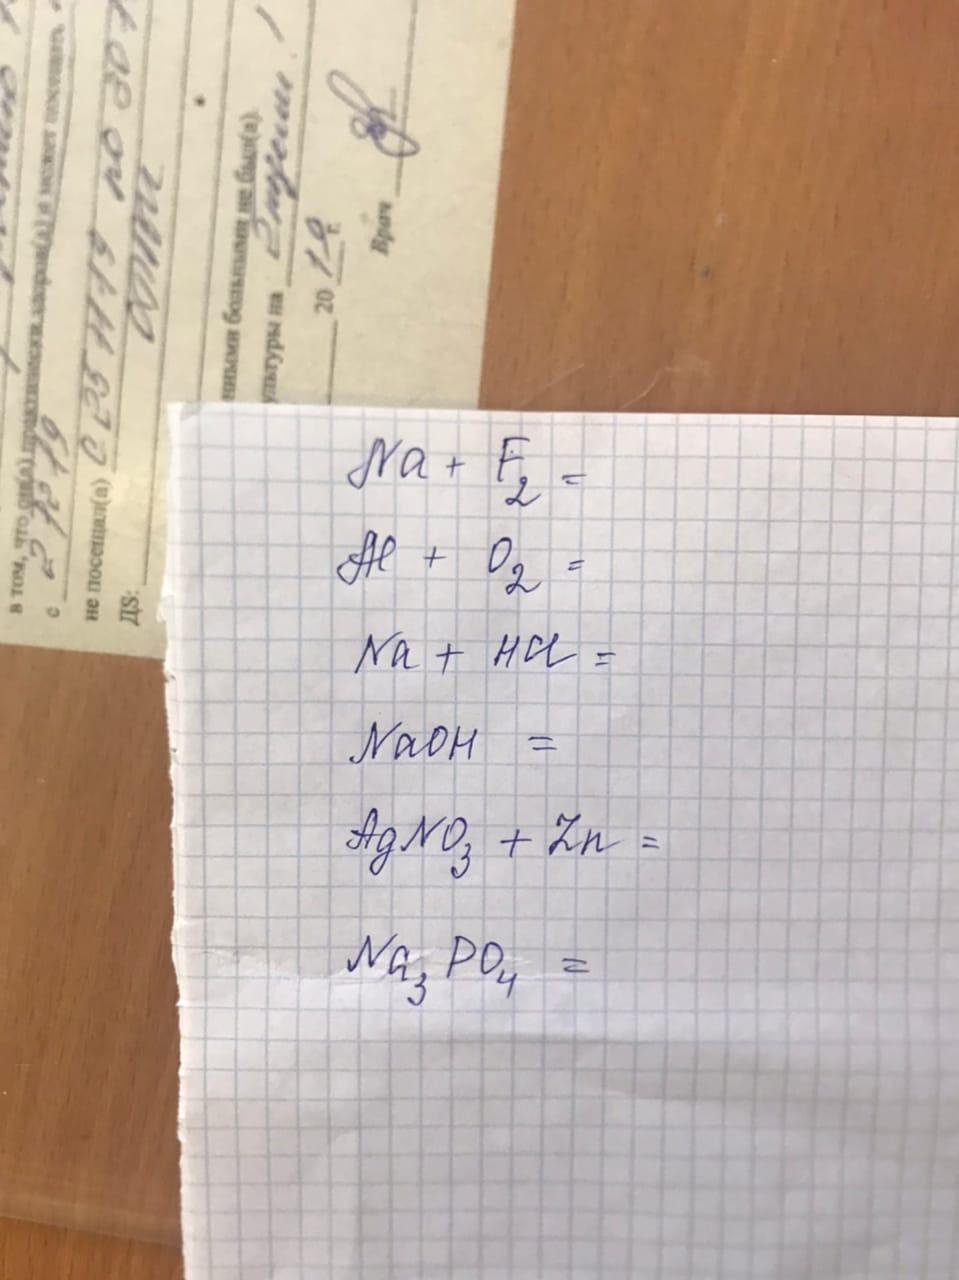 в том, что он(а) практически здоров(а) и может посещать
с
не посещал(а)
по
ДS: ОРВИ
ными больными не был(а).
ультуры на 2 недели
20 19 г.
Врач
Na + F2 =
Al + O2 =
Na + HCl =
NaOH =
AgNO3 + Zn =
Na3PO4 =